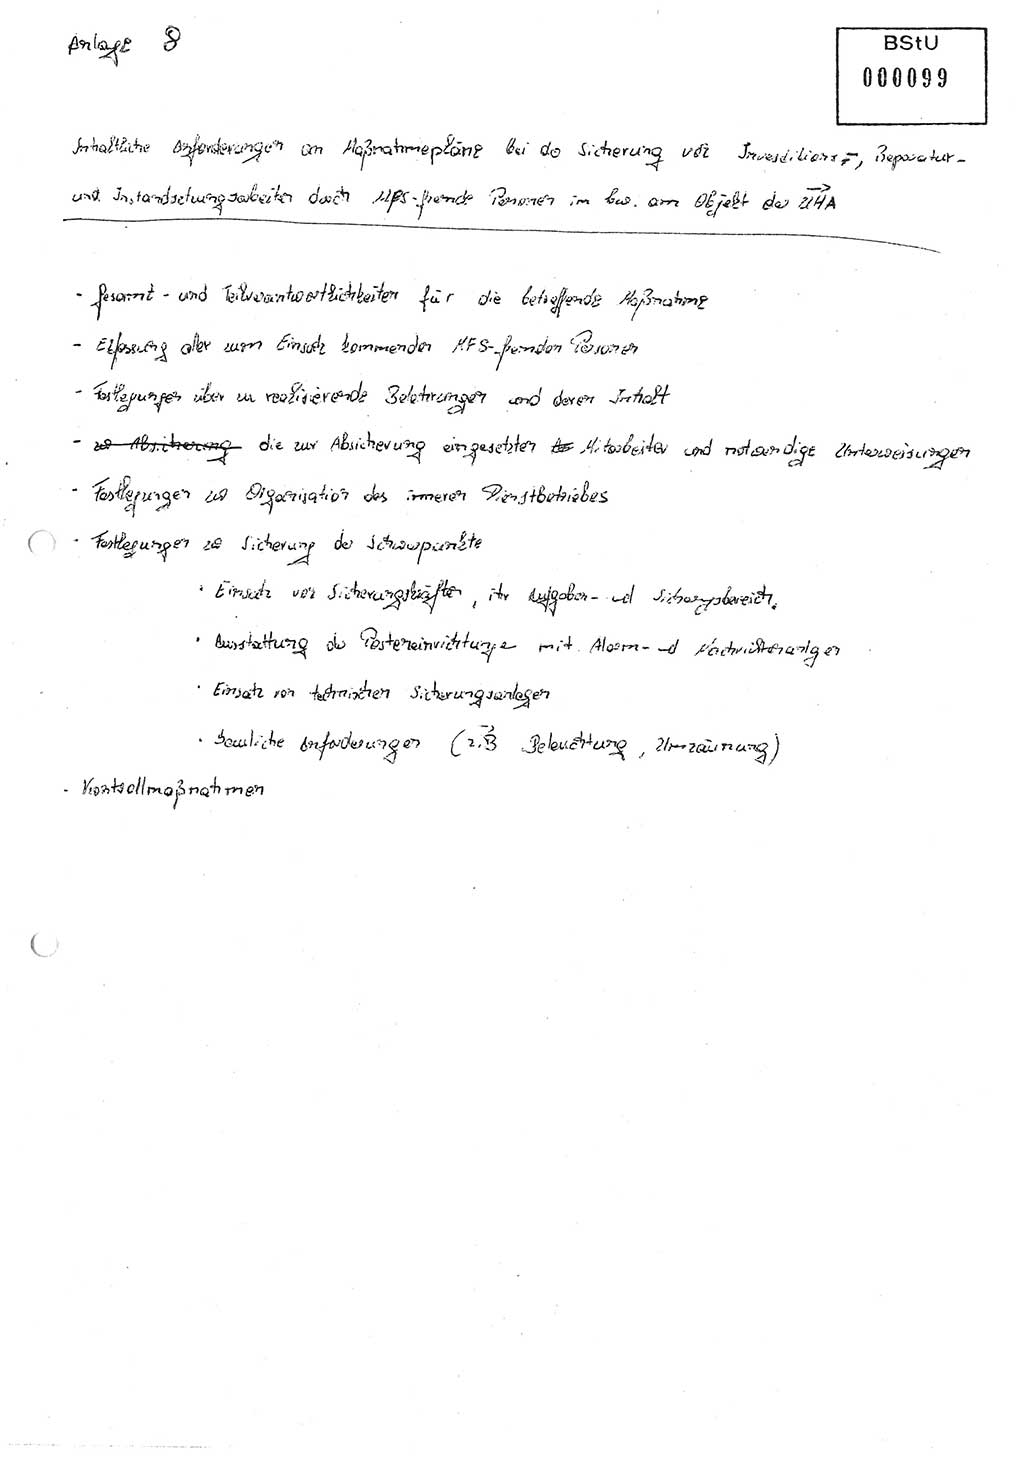 Anlage 8
BStU
000099
Inhaltliche Anforderungen an Maßnahmepläne bei der Sicherung von Investitions-, Reparatur-
und Instandsetzungsarbeiten durch MfS-fremde Personen im bzw. am Objekt der UHA
- Gesamt- und Teilverantwortlichkeiten für die betreffende Maßnahme
- Erfassung aller zum Einsatz kommenden MFS-fremden Personen
- Festlegungen über zu realisierende Belehrungen und deren Inhalt
- zur Absicherung die zur Absicherung eingesetzten Mitarbeiter und notwendige Unterweisungen
- Festlegungen zur Organisation des inneren Dienstbetriebes
- Festlegungen zur Sicherung der Schwerpunkte
· Einsatz von Sicherungskräften, ihr Aufgaben- und Sicherungsbereich
· Ausstattung der Posteneinrichtungen mit Alarm- und Nachrichtenanlagen
· Einsatz von technischen Sicherungsanlagen
· Bauliche Anforderungen (z.B Beleuchtung, Umzäunung)
- Kontrollmaßnahmen